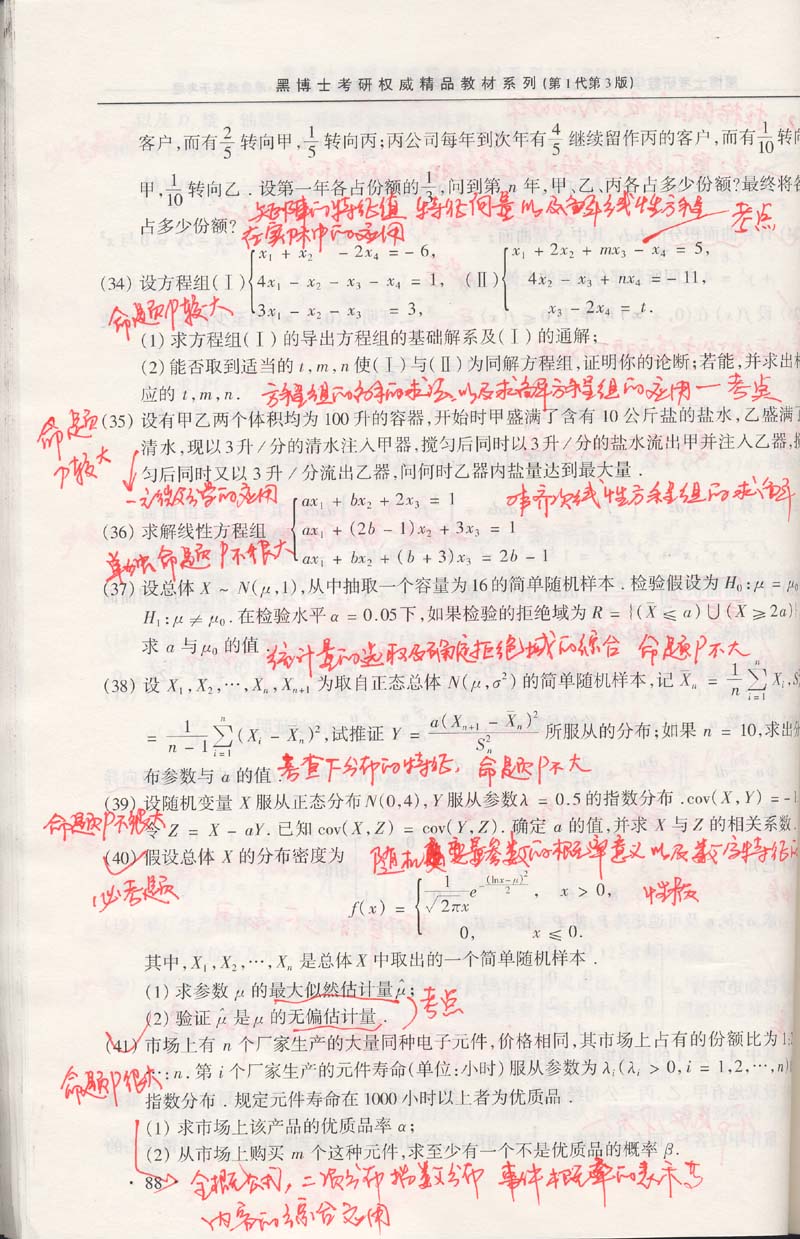 黑博士考研权威精品教材系列(第1代第3版)
客户,而有2/5转向甲,1/5转向丙;丙公司每年到次年有4/5继续留作丙的客户,而有1/10转
甲,1/10转向乙.设第一年各占份额的1/3,问到第n年,甲、乙、丙各占多少份额?最终将
占多少份额? 矩阵的特征值 特征向量以及解线性方程 考点
在实际中的应用
(34) 设方程组(Ⅰ){x₁ + x₂ - 2x₄ = -6, 4x₁ - x₂ - x₃ - x₄ = 1, 3x₁ - x₂ - x₃ = 3, (Ⅱ){x₁ + 2x₂ + mx₃ - x₄ = 5, 4x₂ - x₃ + nx₄ = -11, x₃ - 2x₄ = t.
命题P较大
(1) 求方程组(Ⅰ)的导出方程组的基础解系及(Ⅰ)的通解;
(2) 能否取到适当的 t,m,n 使(Ⅰ)与(Ⅱ)为同解方程组,证明你的论断;若能,并求出
应的 t,m,n. 考点
命题
P较大
(35) 设有甲乙两个体积均为100升的容器,开始时甲盛满了含有10公斤盐的盐水,乙盛满
清水,现以3升/分的清水注入甲器,搅匀后同时以3升/分的盐水流出甲并注入乙器,
匀后同时又以3升/分流出乙器,问何时乙器内盐量达到最大量.
一元微分学的应用 非齐次线性方程组的求解
(36) 求解线性方程组 {ax₁ + bx₂ + 2x₃ = 1 ax₁ + (2b - 1)x₂ + 3x₃ = 1 ax₁ + bx₂ + (b + 3)x₃ = 2b - 1
单独命题P不很大
(37) 设总体 X ~ N(μ,1),从中抽取一个容量为16的简单随机样本.检验假设为 H₀:μ = μ₀
H₁:μ ≠ μ₀.在检验水平 α = 0.05下,如果检验的拒绝域为 R = {(X̄ ⩽ a)∪(X̄ ⩾ 2a)
求 a 与μ₀ 的值. 统计量的选取及确定拒绝域的综合 命题P不大
(38) 设 X₁,X₂,…,Xₙ,Xₙ₊₁ 为取自正态总体 N(μ,σ²) 的简单随机样本,记 X̄ₙ = 1/n ∑ᵢ₌₁ⁿ Xᵢ,
= 1/(n-1) ∑ᵢ₌₁ⁿ (Xᵢ - X̄ₙ)²,试推证 Y = a(Xₙ₊₁ - X̄ₙ)²/Sₙ² 所服从的分布;如果 n = 10,求出
布参数与 a 的值. 考查F分布的特征, 命题P不大
(39) 设随机变量 X 服从正态分布N(0,4),Y 服从参数λ = 0.5 的指数分布.cov(X,Y) = -1
命题P不很大
令 Z = X - aY.已知 cov(X,Z) = cov(Y,Z).确定 a 的值,并求 X 与 Z 的相关系数.
(40) 假设总体 X 的分布密度为 随机变量参数的概率意义以及数字特征的
必考题 性质
f(x) = {1/(√2πx) e^(-(lnx-μ)²/2), x > 0, 0, x ⩽ 0.
其中,X₁,X₂,…,Xₙ 是总体X 中取出的一个简单随机样本.
(1) 求参数 μ 的最大似然估计量μ̂;
(2) 验证 μ̂ 是 μ 的无偏估计量. 考点
(41) 市场上有 n 个厂家生产的大量同种电子元件,价格相同,其市场上占有的份额比为1:
命题P很大
…:n.第 i 个厂家生产的元件寿命(单位:小时)服从参数为 λᵢ(λᵢ > 0,i = 1,2,…,n)
指数分布.规定元件寿命在1000小时以上者为优质品.
(1) 求市场上该产品的优质品率 α;
(2) 从市场上购买 m 个这种元件,求至少有一个不是优质品的概率 β.
· 88 · 全概公式,二项分布 指数分布 事件概率的表示等
内容的综合应用